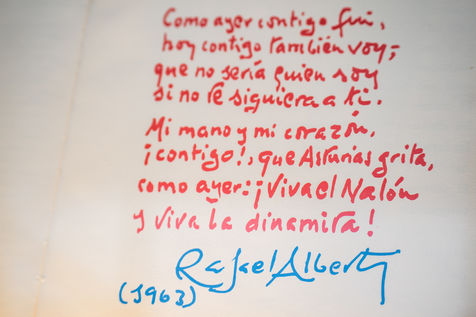 Como ayer contigo fui,
hoy contigo también voy;
que no sería quien soy
si no te siguiera a ti.
Mi mano y mi corazón,
¡contigo!, que Asturias grita,
como ayer: ¡Viva el Nalón
y viva la dinamita!
Rafael Alberti
(1963)